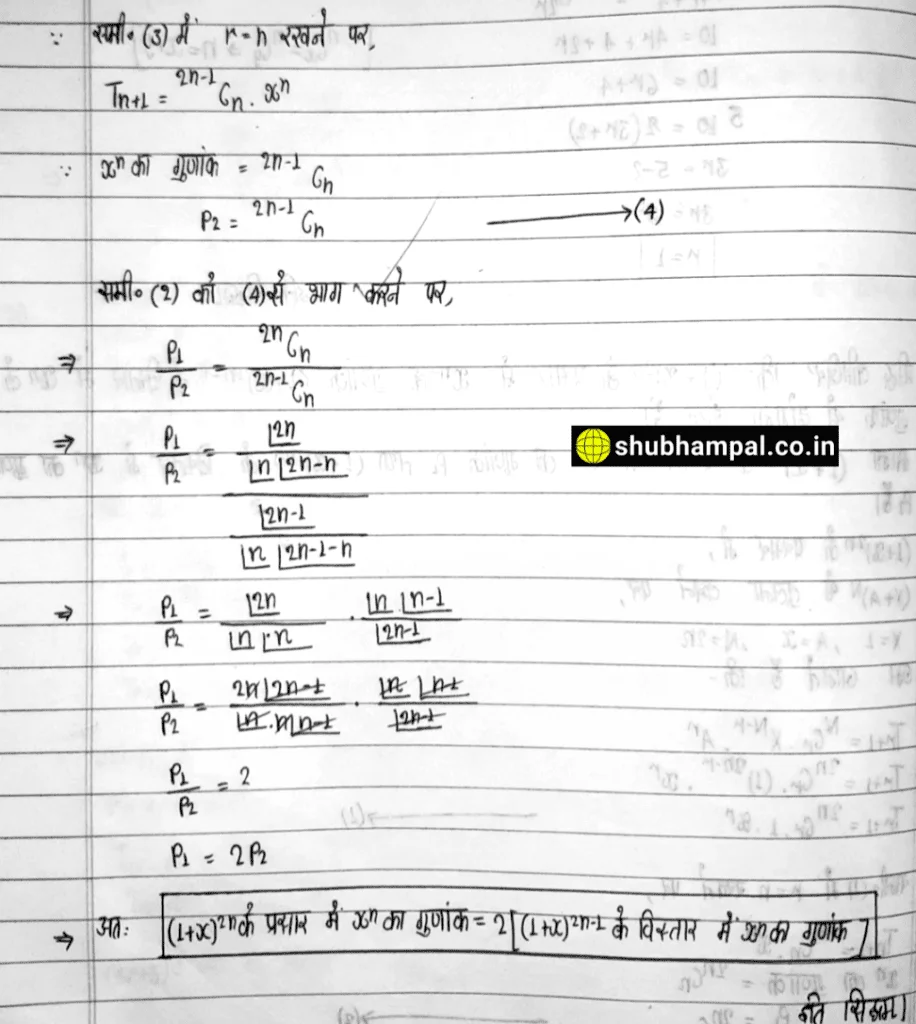 ∵ समी० (3) में r = n रखने पर,
Tn+1 = ²ⁿ⁻¹Cn . xⁿ
∵ xⁿ का गुणांक = ²ⁿ⁻¹Cn
P2 = ²ⁿ⁻¹Cn ⟶ (4)
समी० (2) को (4) से भाग करने पर,
⇒ P1/P2 = ²ⁿCn / ²ⁿ⁻¹Cn
⇒ P1/P2 = (|2n / |n |2n-n) / (|2n-1 / |n |2n-1-n)
shubhampal.co.in
⇒ P1/P2 = |2n / |n |n . |n |n-1 / |2n-1
P1/P2 = 2n|2n-1 / |n.n|n-1 . |n |n-1 / |2n-1
P1/P2 = 2
P1 = 2P2
⇒ अतः [(1+x)²ⁿ के प्रसार में xⁿ का गुणांक = 2[(1+x)²ⁿ⁻¹ के विस्तार में xⁿ का गुणांक]]
इति सिद्धम्।